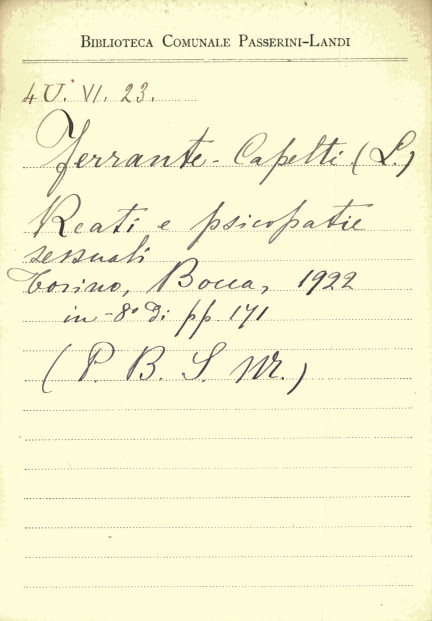 BIBLIOTECA COMUNALE PASSERINI-LANDI
4 U. VI. 23.
Ferrante-Capetti (L.)
Reati e psicopatie
sessuali
Torino, Bocca, 1922
in-8° di pp. 171
(P. B. S. Mr.)